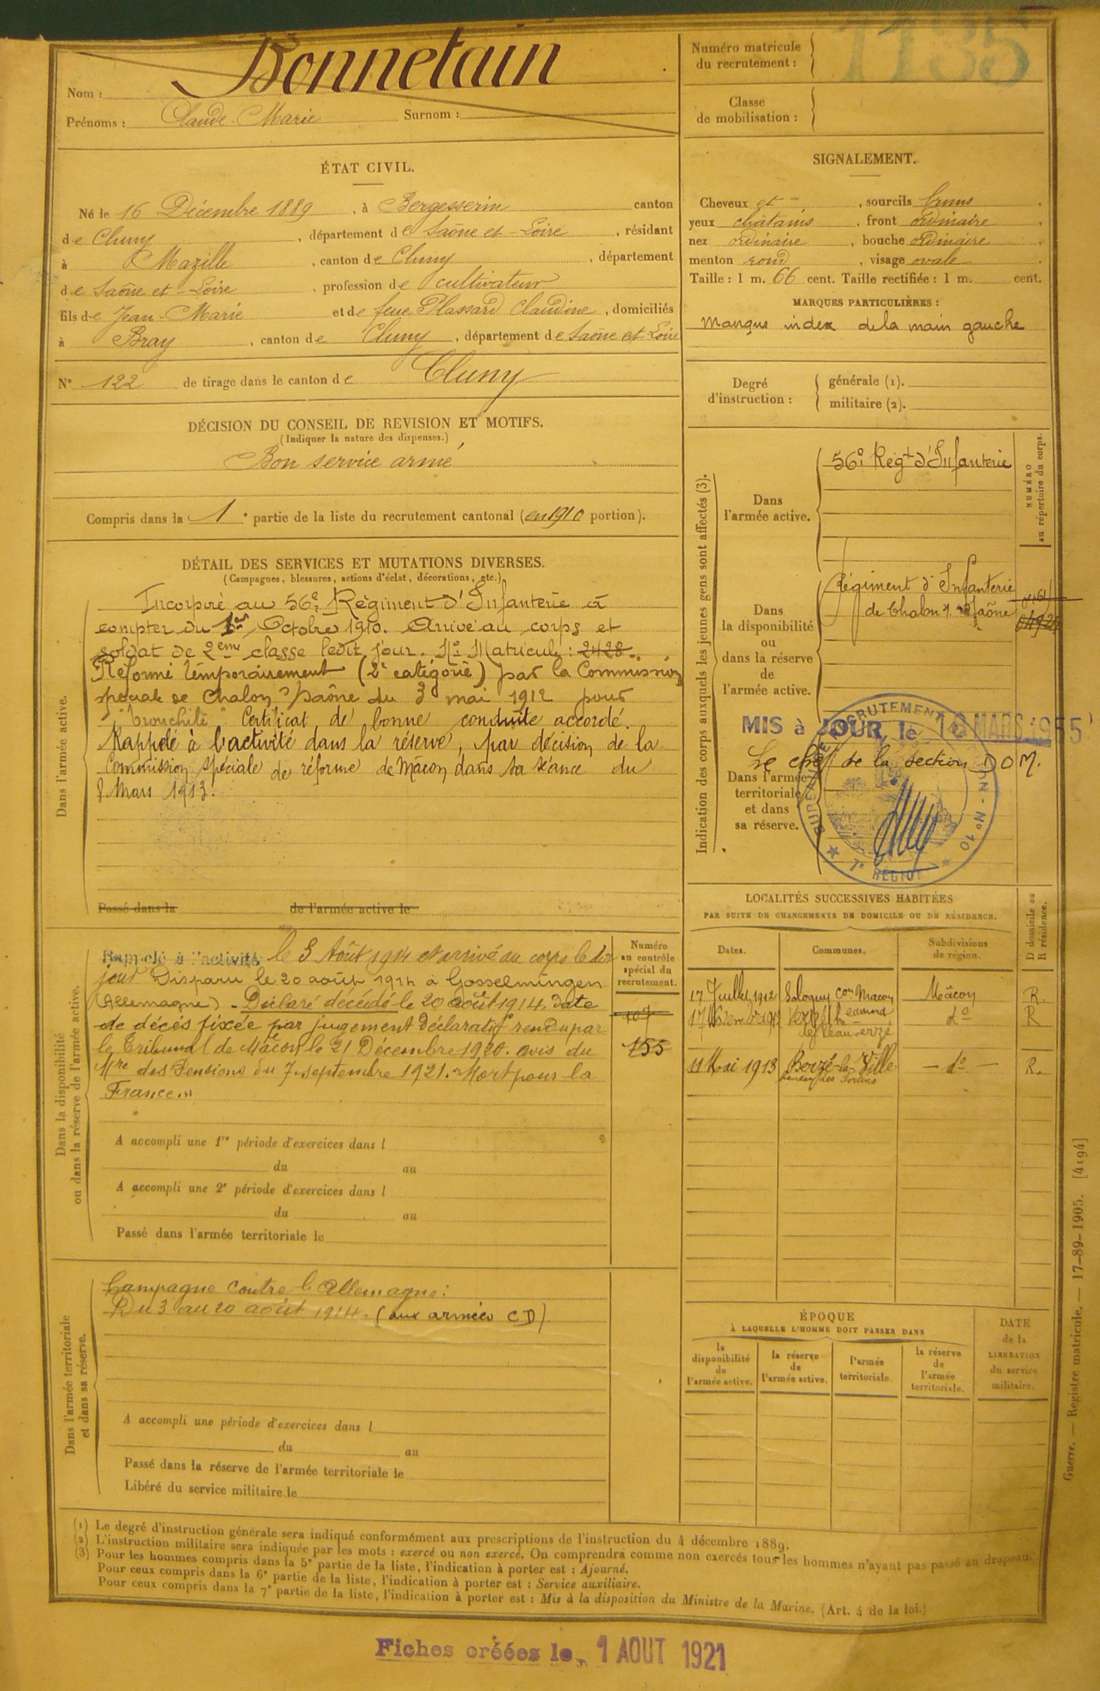 Nom : Bonnetain
Prénoms : Claude-Marie Surnom :
Numéro matricule
du recrutement : 1135
Classe
de mobilisation :
ÉTAT CIVIL.
Né le 16 Décembre 1889, à Bergesserin canton
de Cluny, département de Saône et Loire, résidant
à Mazille, canton de Cluny, département
de Saône et Loire, profession de cultivateur
fils de Jean-Marie et de feue Plassard Claudine, domiciliés
à Bray, canton de Cluny, département de Saône et Loire
N° 122 de tirage dans le canton de Cluny
SIGNALEMENT.
Cheveux et, sourcils bruns
yeux châtains, front ordinaire
nez ordinaire, bouche ordinaire
menton rond, visage ovale
Taille : 1 m. 66 cent. Taille rectifiée : 1 m. cent.
MARQUES PARTICULIÈRES :
Manque index de la main gauche
Degré
d'instruction :
générale (1).
militaire (2).
DÉCISION DU CONSEIL DE REVISION ET MOTIFS.
(Indiquer la nature des dispenses.)
Bon service armé
Compris dans la 1e partie de la liste du recrutement cantonal (en 1910 portion).
DÉTAIL DES SERVICES ET MUTATIONS DIVERSES.
(Campagnes, blessures, actions d'éclat, décorations, etc.)
Dans l'armée active.
Incorporé au 56e Régiment d'Infanterie à
compter du 1er Octobre 1910. Arrivé au corps et
soldat de 2ème classe ledit jour. No Matricule : 2428.
Réformé temporairement (2e catégorie) par la Commission
spéciale de Chalon s/ Saône du 3 mai 1912 pour
"bronchite" Certificat de bonne conduite accordé.
Rappelé à l'activité dans la réserve, par décision de la
Commission spéciale de réforme de Mâcon dans sa séance du
Mars 1913.
Passé dans la de l'armée active le
Indication des corps auxquels les jeunes gens sont affectés (3).
NUMÉRO
au répertoire du corps.
Dans
l'armée active.
56e Régt d'Infanterie
Dans
la disponibilité
ou
dans la réserve
de
l'armée active.
Régiment d'Infanterie
de Chalon s/ Saône
MIS à JOUR, le MARS 1955
Le chef de la section D O M.
RECRUTEMENT
7e REGION
Dans l'armée
territoriale
et dans
sa réserve.
Dans la disponibilité
ou dans la réserve de l'armée active.
Numéro
au contrôle
spécial du
recrutement.
155
Rappelé à l'activité le 3 Août 1914 et arrivé au corps le dit
jour Disparu le 20 août 1914 à Gosselmingen
(Allemagne). Déclaré décédé le 20 août 1914, date
de décès fixée par jugement déclaratif rendu par
le Tribunal de Mâcon le 21 Décembre 1920. avis du
Mre des Pensions du 7 septembre 1921. Mort pour la
France
A accompli une 1re période d'exercices dans l
du au
A accompli une 2e période d'exercices dans l
du au
Passé dans l'armée territoriale le
LOCALITÉS SUCCESSIVES HABITÉES
PAR SUITE DE CHANGEMENTS DE DOMICILE OU DE RÉSIDENCE.
Dates. Communes. Subdivisions
de région. D domicile ou
R résidence.
17 Juillet 1912 Sologny con Macon Mâcon R.
do R
11 Mai 1913 Berzé-la-Ville do R.
Dans l'armée territoriale
et dans sa réserve.
Campagne contre l'Allemagne :
Du 3 au 20 août 1914. (aux armées CD)
A accompli une période d'exercices dans l
du au
Passé dans la réserve de l'armée territoriale le
Libéré du service militaire le
ÉPOQUE
À LAQUELLE L'HOMME DOIT PASSER DANS
la
disponibilité
de
l'armée active.
la réserve
de
l'armée active.
l'armée
territoriale.
la réserve
de
l'armée
territoriale.
DATE
de la
LIBÉRATION
du service
militaire.
Guerre. — Registre matricule. — 17-89-1905. [4194]
(1) Le degré d'instruction générale sera indiqué conformément aux prescriptions de l'instruction du 4 décembre 1889.
(2) L'instruction militaire sera indiquée par les mots : exercé ou non exercé. On comprendra comme non exercés tous les hommes n'ayant pas passé au drapeau.
(3) Pour les hommes compris dans la 5e partie de la liste, l'indication à porter est : Ajourné.
Pour ceux compris dans la 6e partie de la liste, l'indication à porter est : Service auxiliaire.
Pour ceux compris dans la 7e partie de la liste, l'indication à porter est : Mis à la disposition du Ministre de la Marine. (Art. 4 de la loi.)
Fiches créées le 1 AOUT 1921